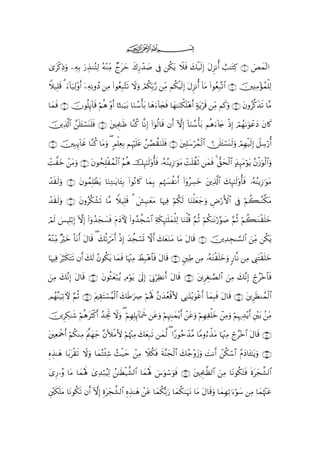 بِسْمِ اللَّهِ الرَّحْمَٰنِ الرَّحِيمِ
الٓمٓصٓ ۝ كِتَٰبٌ أُنزِلَ إِلَيْكَ فَلَا يَكُن فِى صَدْرِكَ حَرَجٌ مِّنْهُ لِتُنذِرَ بِهِۦ وَذِكْرَىٰ
لِلْمُؤْمِنِينَ ۝ ٱتَّبِعُوا۟ مَآ أُنزِلَ إِلَيْكُم مِّن رَّبِّكُمْ وَلَا تَتَّبِعُوا۟ مِن دُونِهِۦٓ أَوْلِيَآءَ ۗ قَلِيلًا
مَّا تَذَكَّرُونَ ۝ وَكَم مِّن قَرْيَةٍ أَهْلَكْنَٰهَا فَجَآءَهَا بَأْسُنَا بَيَٰتًا أَوْ هُمْ قَآئِلُونَ ۝ فَمَا
كَانَ دَعْوَىٰهُمْ إِذْ جَآءَهُم بَأْسُنَآ إِلَّآ أَن قَالُوٓا۟ إِنَّا كُنَّا ظَٰلِمِينَ ۝ فَلَنَسْـَٔلَنَّ ٱلَّذِينَ
أُرْسِلَ إِلَيْهِمْ وَلَنَسْـَٔلَنَّ ٱلْمُرْسَلِينَ ۝ فَلَنَقُصَّنَّ عَلَيْهِم بِعِلْمٍ ۖ وَمَا كُنَّا غَآئِبِينَ ۝
وَٱلْوَزْنُ يَوْمَئِذٍ ٱلْحَقُّ ۚ فَمَن ثَقُلَتْ مَوَٰزِينُهُۥ فَأُو۟لَٰٓئِكَ هُمُ ٱلْمُفْلِحُونَ ۝ وَمَنْ خَفَّتْ
مَوَٰزِينُهُۥ فَأُو۟لَٰٓئِكَ ٱلَّذِينَ خَسِرُوٓا۟ أَنفُسَهُم بِمَا كَانُوا۟ بِـَٔايَٰتِنَا يَظْلِمُونَ ۝ وَلَقَدْ
مَكَّنَّٰكُمْ فِى ٱلْأَرْضِ وَجَعَلْنَا لَكُمْ فِيهَا مَعَٰيِشَ ۗ قَلِيلًا مَّا تَشْكُرُونَ ۝ وَلَقَدْ
خَلَقْنَٰكُمْ ثُمَّ صَوَّرْنَٰكُمْ ثُمَّ قُلْنَا لِلْمَلَٰٓئِكَةِ ٱسْجُدُوا۟ لِءَادَمَ فَسَجَدُوٓا۟ إِلَّآ إِبْلِيسَ لَمْ
يَكُن مِّنَ ٱلسَّٰجِدِينَ ۝ قَالَ مَا مَنَعَكَ أَلَّا تَسْجُدَ إِذْ أَمَرْتُكَ ۖ قَالَ أَنَا۠ خَيْرٌ مِّنْهُ
خَلَقْتَنِى مِن نَّارٍ وَخَلَقْتَهُۥ مِن طِينٍ ۝ قَالَ فَٱهْبِطْ مِنْهَا فَمَا يَكُونُ لَكَ أَن تَتَكَبَّرَ فِيهَا
فَٱخْرُجْ إِنَّكَ مِنَ ٱلصَّٰغِرِينَ ۝ قَالَ أَنظِرْنِىٓ إِلَىٰ يَوْمِ يُبْعَثُونَ ۝ قَالَ إِنَّكَ مِنَ
ٱلْمُنظَرِينَ ۝ قَالَ فَبِمَآ أَغْوَيْتَنِى لَأَقْعُدَنَّ لَهُمْ صِرَٰطَكَ ٱلْمُسْتَقِيمَ ۝ ثُمَّ لَءَاتِيَنَّهُم
مِّنۢ بَيْنِ أَيْدِيهِمْ وَمِنْ خَلْفِهِمْ وَعَنْ أَيْمَٰنِهِمْ وَعَن شَمَآئِلِهِمْ ۖ وَلَا تَجِدُ أَكْثَرَهُمْ شَٰكِرِينَ
۝ قَالَ ٱخْرُجْ مِنْهَا مَذْءُومًا مَّدْحُورًا ۖ لَّمَن تَبِعَكَ مِنْهُمْ لَأَمْلَأَنَّ جَهَنَّمَ مِنكُمْ أَجْمَعِينَ
۝ وَيَٰٓـَٔادَمُ ٱسْكُنْ أَنتَ وَزَوْجُكَ ٱلْجَنَّةَ فَكُلَا مِنْ حَيْثُ شِئْتُمَا وَلَا تَقْرَبَا هَٰذِهِ
ٱلشَّجَرَةَ فَتَكُونَا مِنَ ٱلظَّٰلِمِينَ ۝ فَوَسْوَسَ لَهُمَا ٱلشَّيْطَٰنُ لِيُبْدِىَ لَهُمَا مَا وُۥرِىَ
عَنْهُمَا مِن سَوْءَٰتِهِمَا وَقَالَ مَا نَهَىٰكُمَا رَبُّكُمَا عَنْ هَٰذِهِ ٱلشَّجَرَةِ إِلَّآ أَن تَكُونَا مَلَكَيْنِ